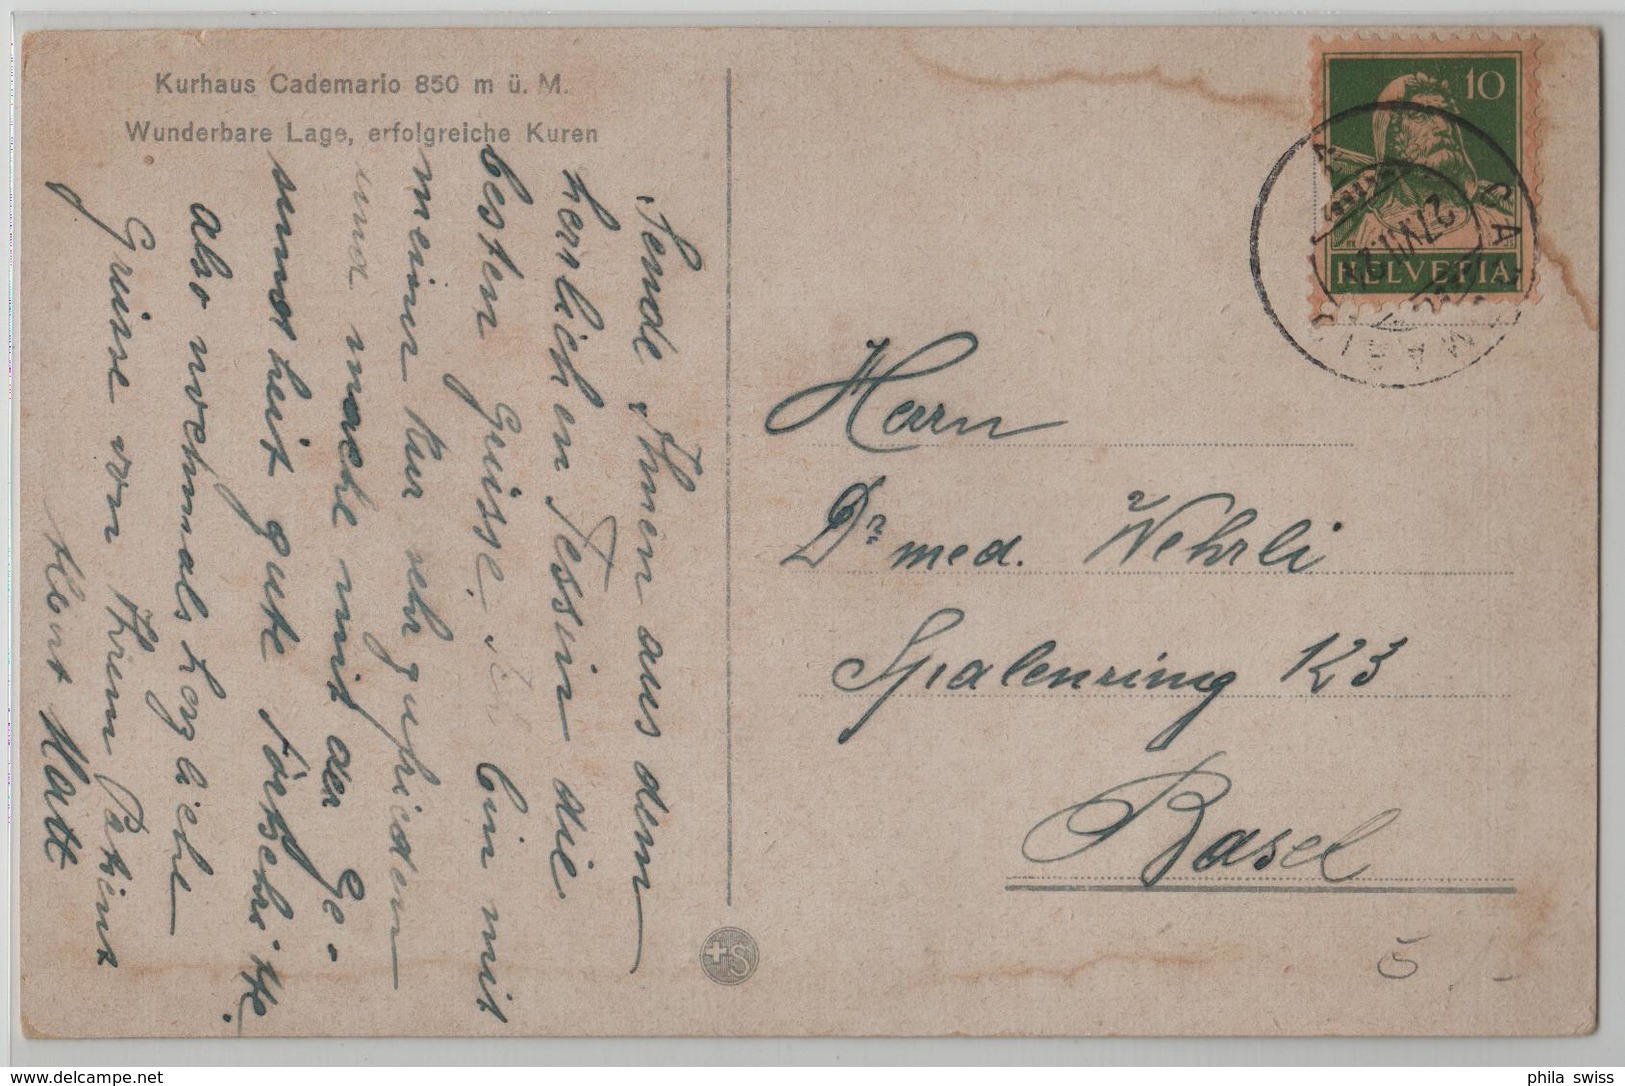 Kurhaus Cademario 850 m ü. M.
Wunderbare Lage, erfolgreiche Kuren
Sende Ihnen aus dem
herrlichen Tessin die
besten Grüsse. Ich bin mit
meiner Kur sehr zufrieden
und mache mit der Ge-
sundheit gute Fortschritte.
also nochmals herzliche
Grüsse von Ihrem Patient
Albert Matt
10
HELVETIA
CADEMARIO
27.VII.
Herrn
Dr. med. Wehrli
Spalenring 123
Basel
+S
5/-
phila swiss